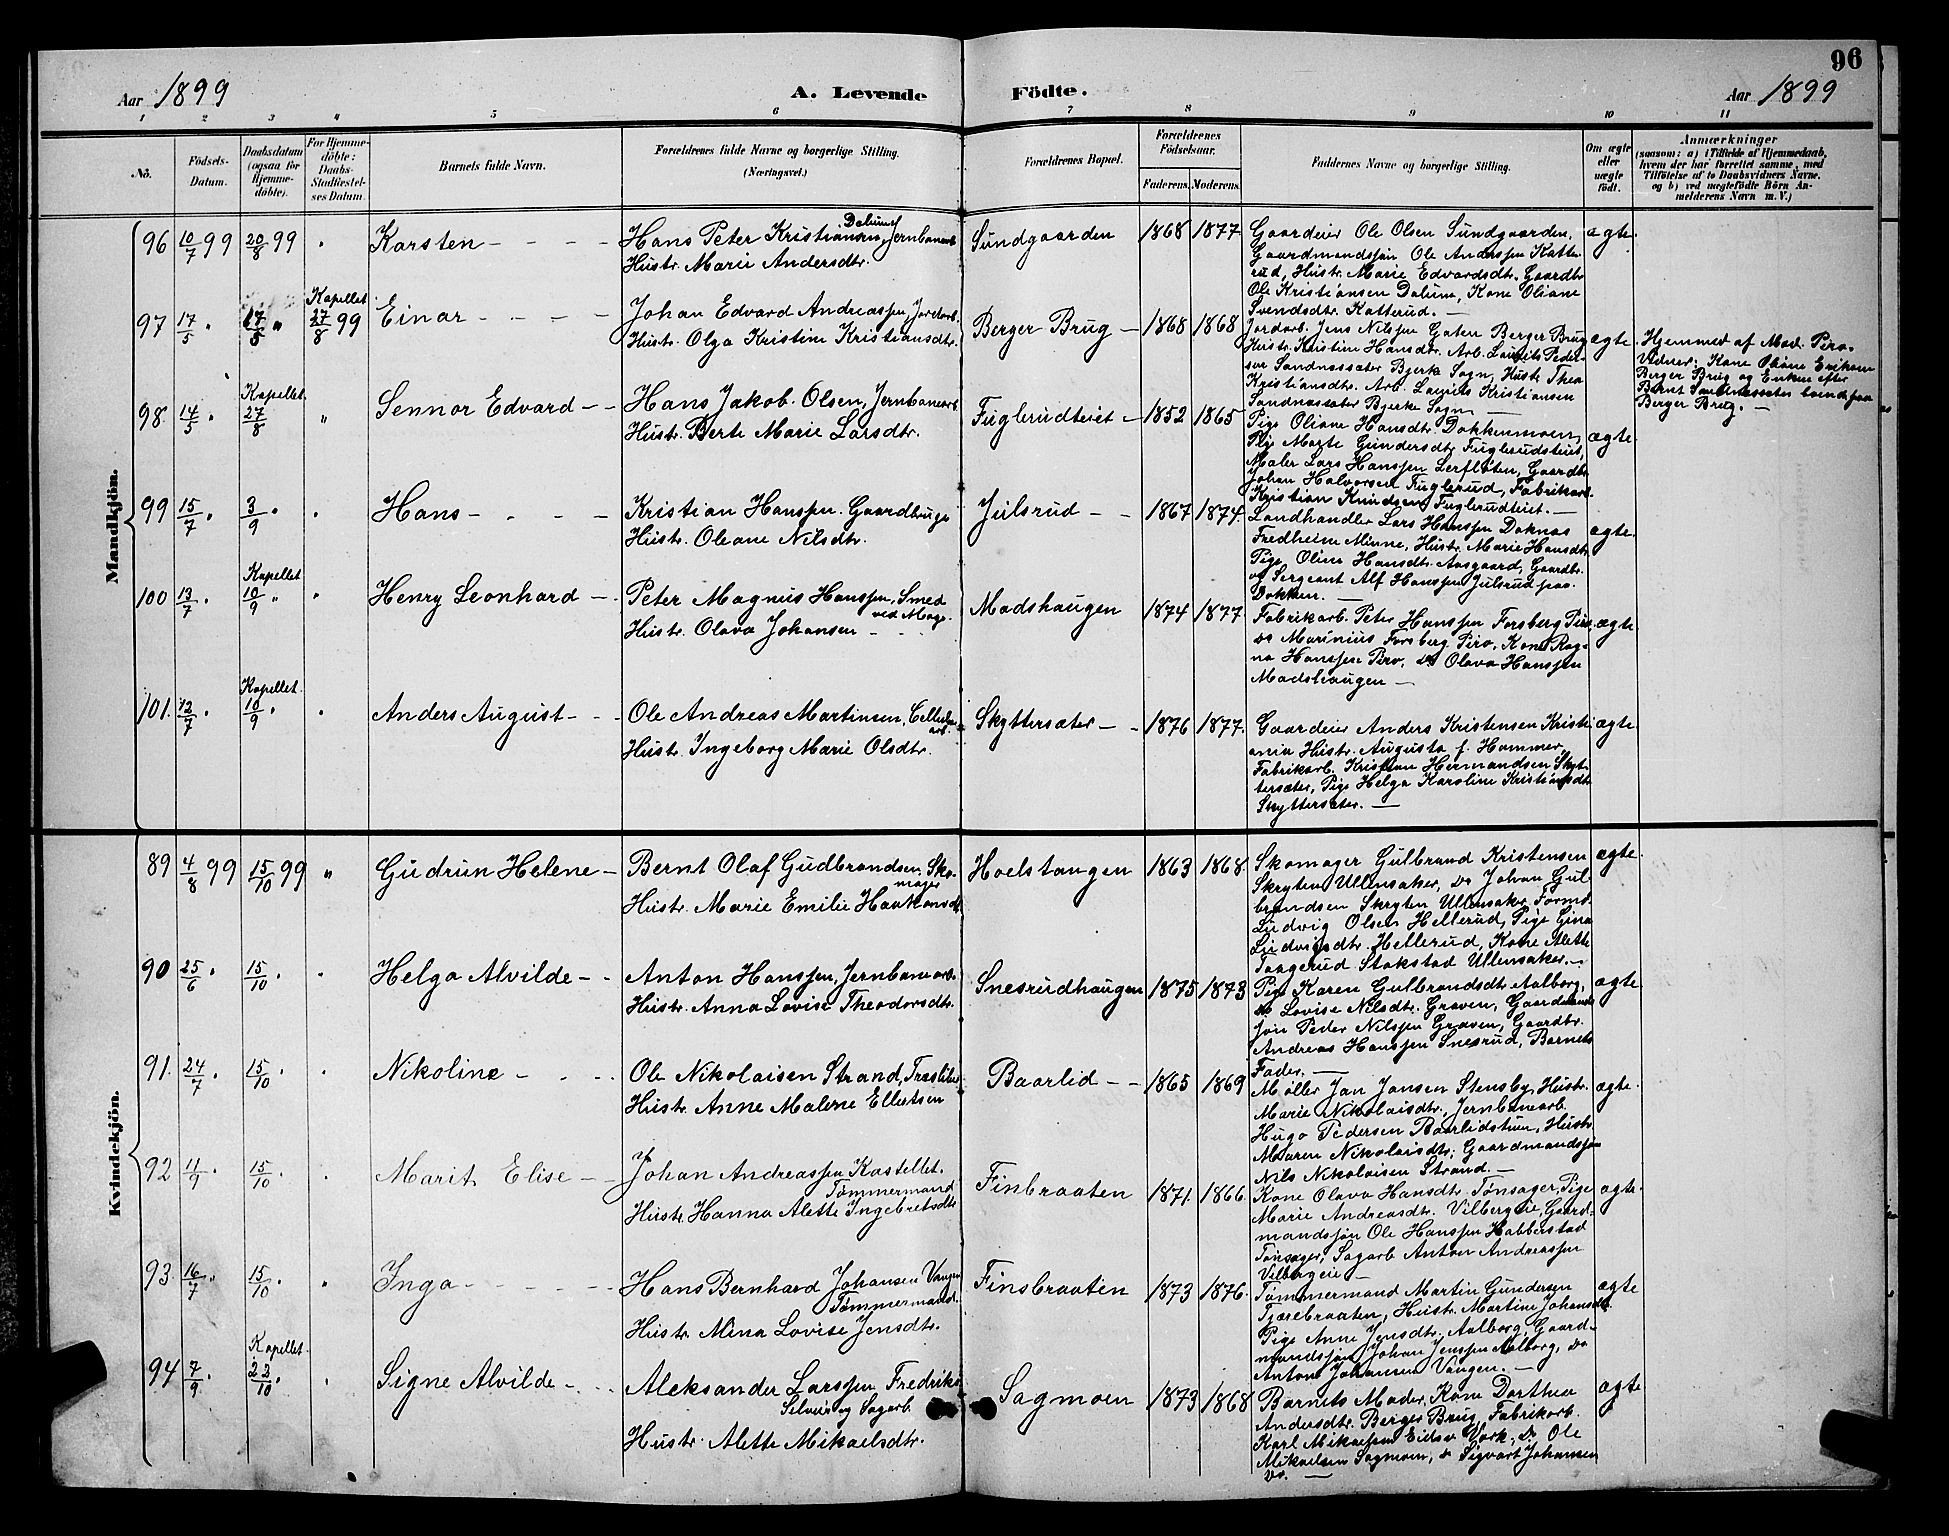 96
Aar 1899 A. Levende Födte. Aar 1899
1 2 3 4 5 6 7 8 9 10 11
No. Födsels-Datum. Daabsdatum (ogsaa for Hjemmedöbte). For Hjemmedöbte: Daabs-Stadfæstelses Datum. Barnets fulde Navn. Forældrenes fulde Navne og borgerlige Stilling. (Næringsvei.) Forældrenes Bopæl. Forældrenes Födselsaar. Faderens. Moderens. Faddernes Navne og borgerlige Stilling. Om ægte eller uægte födt. Anmærkninger
(saasom: a) i Tilfælde af Hjemmedaab,
hvem der har forrettet samme, med
Tilföielse af to Daabsvidners Navne.
og b) ved uægtefödte Börn An-
melderens Navn m. V.)
Mandkjön.
96 10/7 99 20/8 99 " Karsten - - - - Hans Peter Kristiansen Dalund, Jernbanearb.
Hustr. Marie Andersdtr.
Sundgaarden 1868 1877
Gaardeier Ole Olsen Sundgaarden,
Gaardmandssjön Ole Anderssen Katte-
rud, Hustr. Marie Edvardsdtr. Gaardbr.
Ole Kristiansen Dalume, Kone Oliane
Svendsdtr. Katterud. —
ægte.
97 17/5 " 17/5 " Kapellet 27/8 99 Einar - - - - Johan Edvard Andreassen, Jordarb.
Hustr. Olga Kristine Kristiansdtr.
Berger Brug — 1868 1868
Jordarb. Jens Nilssen Gaten Berger Brug
Hustr. Kristine Hansdtr. Arb. Lauits Peder-
sen Sandnessæter Bjerke Sogn, Hustr. Thea
Kristiansdtr. Arb. Laurits Kristiansen
Sandnessæter Bjerke Sogn —
ægte.
Hjemmed. af Mad. Piro.
Vidner: Kone Oliane Eriksen
Berger Brug og Enken efter
Bernt Sandnessæter boende paa
Berger Brug. —
98. 14/5 " Kapellet 27/8 " Sennor Edvard - - Hans Jakob Olsen, Jernbanearb.
Hustr. Berte Marie Larsdtr.
Fuglerudteiet - 1852 1865
Pige Oliane Hansdtr. Dokkenmoen,
Pige Marte Gundersdtr. Fuglerudsteiet,
Maler Lars Hanssen Lerfløten, Gaardbr.
Johan Halvorsen Fuglerud, Fabrikarb.
Kristian Knudsen Fuglerudteiet. —
ægte.
99 15/7 " 3/9 " " Hans - - - - Kristian Hanssen Gaardbruger
Hustr. Oleane Nilsdtr.
Julsrud - - 1867 1874.
Landhandler Lars Hanssen Doknas
Fredheim Minne, Hustr. Marie Hansdtr.
Pige Oline Hansdtr. Aasgaard, Gaardbr.
og Sergeant Alf Hanssen Julsrud paa
Dokken. —
ægte.
100 13/7 " Kapellet 10/9 " " Henry Leonhard - - Peter Magnus Hanssen, Smed
Hustr. Olava Johansen - - -
Madshaugen 1874 1877
Fabrikarb. Peter Hanssen Forsberg Piro,
Do Marinius Forsberg Piro, Kone Rag-
na Hanssen Piro, do Olava Hanssen
Madshaugen —
ægte.
101. 12/7 " Kapellet 10/9 " " Anders August - - - Ole Andreas Martinsen, Cellulosearb.
Hustr. Ingeborg Marie Olsdtr.
Skyttersæter - - 1876 1877.
Gaardeier Anders Kristensen Kristi-
ania Hustr. Augusta f. Hammer
Fabrikarb. Kristian Hermandsen Skyt-
tersæter, Pige Helga Karoline Kristiansdtr.
Skyttersæter. —
ægte.
Kvindekjön.
89 4/8 99 15/10 99 " Gudrun Helene - Bernt Olaf Gudbrandsen, Sko-
mager
Hustr. Marie Emilie Haakonsdtr.
Hoelstangen 1863 1868.
Skomager Gulbrand Kristensen
Skryten Ullensaker, do Johan Gul-
brandsen Skryten Ullensaker, Formd.
Ludvig Olsen Hellerud, Pige Gina
Ludvigsdtr. Hellerud, Kone Alette
Taagerud Stokstad Ullensaker. —
ægte.
90 25/6 " 15/10 " " Helga Alvilde - - Anton Hanssen, Jernbanearb.
Hustr. Anna Lovise Theodorsdtr.
Snesrudhaugen 1875 1873
Pige Karen Gulbrandsdtr. Aalborg,
do Lovise Nilsdtr. Graven, Gaardmands-
sjön Peder Nilssen Graven, Gaardbr.
Andreas Hanssen Snesrud, Barnets
Fader. —
ægte.
91. 24/7 " 15/10 " " Nikoline - - - Ole Nikolaisen Strand, Træsliber
Hustr. Anne Malene Ellertsen
Baarlid - - 1865 1869
Møller Jan Jansen Stensby, Hustr.
Marie Nikolaisdtr., Jernbanearb.
Hugo Pedersen Baarlidstuen, Hustr.
Maren Nikolaisdtr., Gaardmandssjøn
Nils Nikolaisen Strand. —
ægte.
92 11/9 15/10 " " Marit Elise - - Johan Andreassen Kastellet.
Tømmermand
Hustr. Hanna Alette Ingebretsdtr.
Finbraaten 1871 1866.
Kone Olava Hansdtr. Tønsager, Pige
Marie Andreasdtr. Vilbergeie, Gaard-
mandssjøn Ole Hanssen Habberstad
Tønsager, Sagarb. Anton Andreassen
Vilbergeie —
ægte.
93. 16/7 " 15/10 " " Inga - - - - Hans Bernhard Johansen Vangen
Tømmermand.
Hustr. Mina Lovise Jensdtr.
Finsbraaten 1873 1876.
Tømmermand Martin Gundersen
Tjærebraaten, Hustr. Martine Johansdtr.
Pige Anne Jensdtr. Aalborg, Gaard-
mandssjøn Johan Jenssen Aalborg, do
Anton Johansen Vangen. —
ægte
94 7/9 " Kapellet. 22/10 " " Signe Alvilde - - - Aleksander Larssen Fredriks
Selveier og Sagarb.
Hustr. Alette Mikaelsdtr.
Sagmoen 1873 1868
Barnets Moder, Kone Dorthea
Andersdtr. Berger Brug, Fabrikarb.
Karl Mikaelsen Eidsv. Værk, do Ole
Mikaelsen Sagmoen, do Sigvart Johansen
do. —
ægte